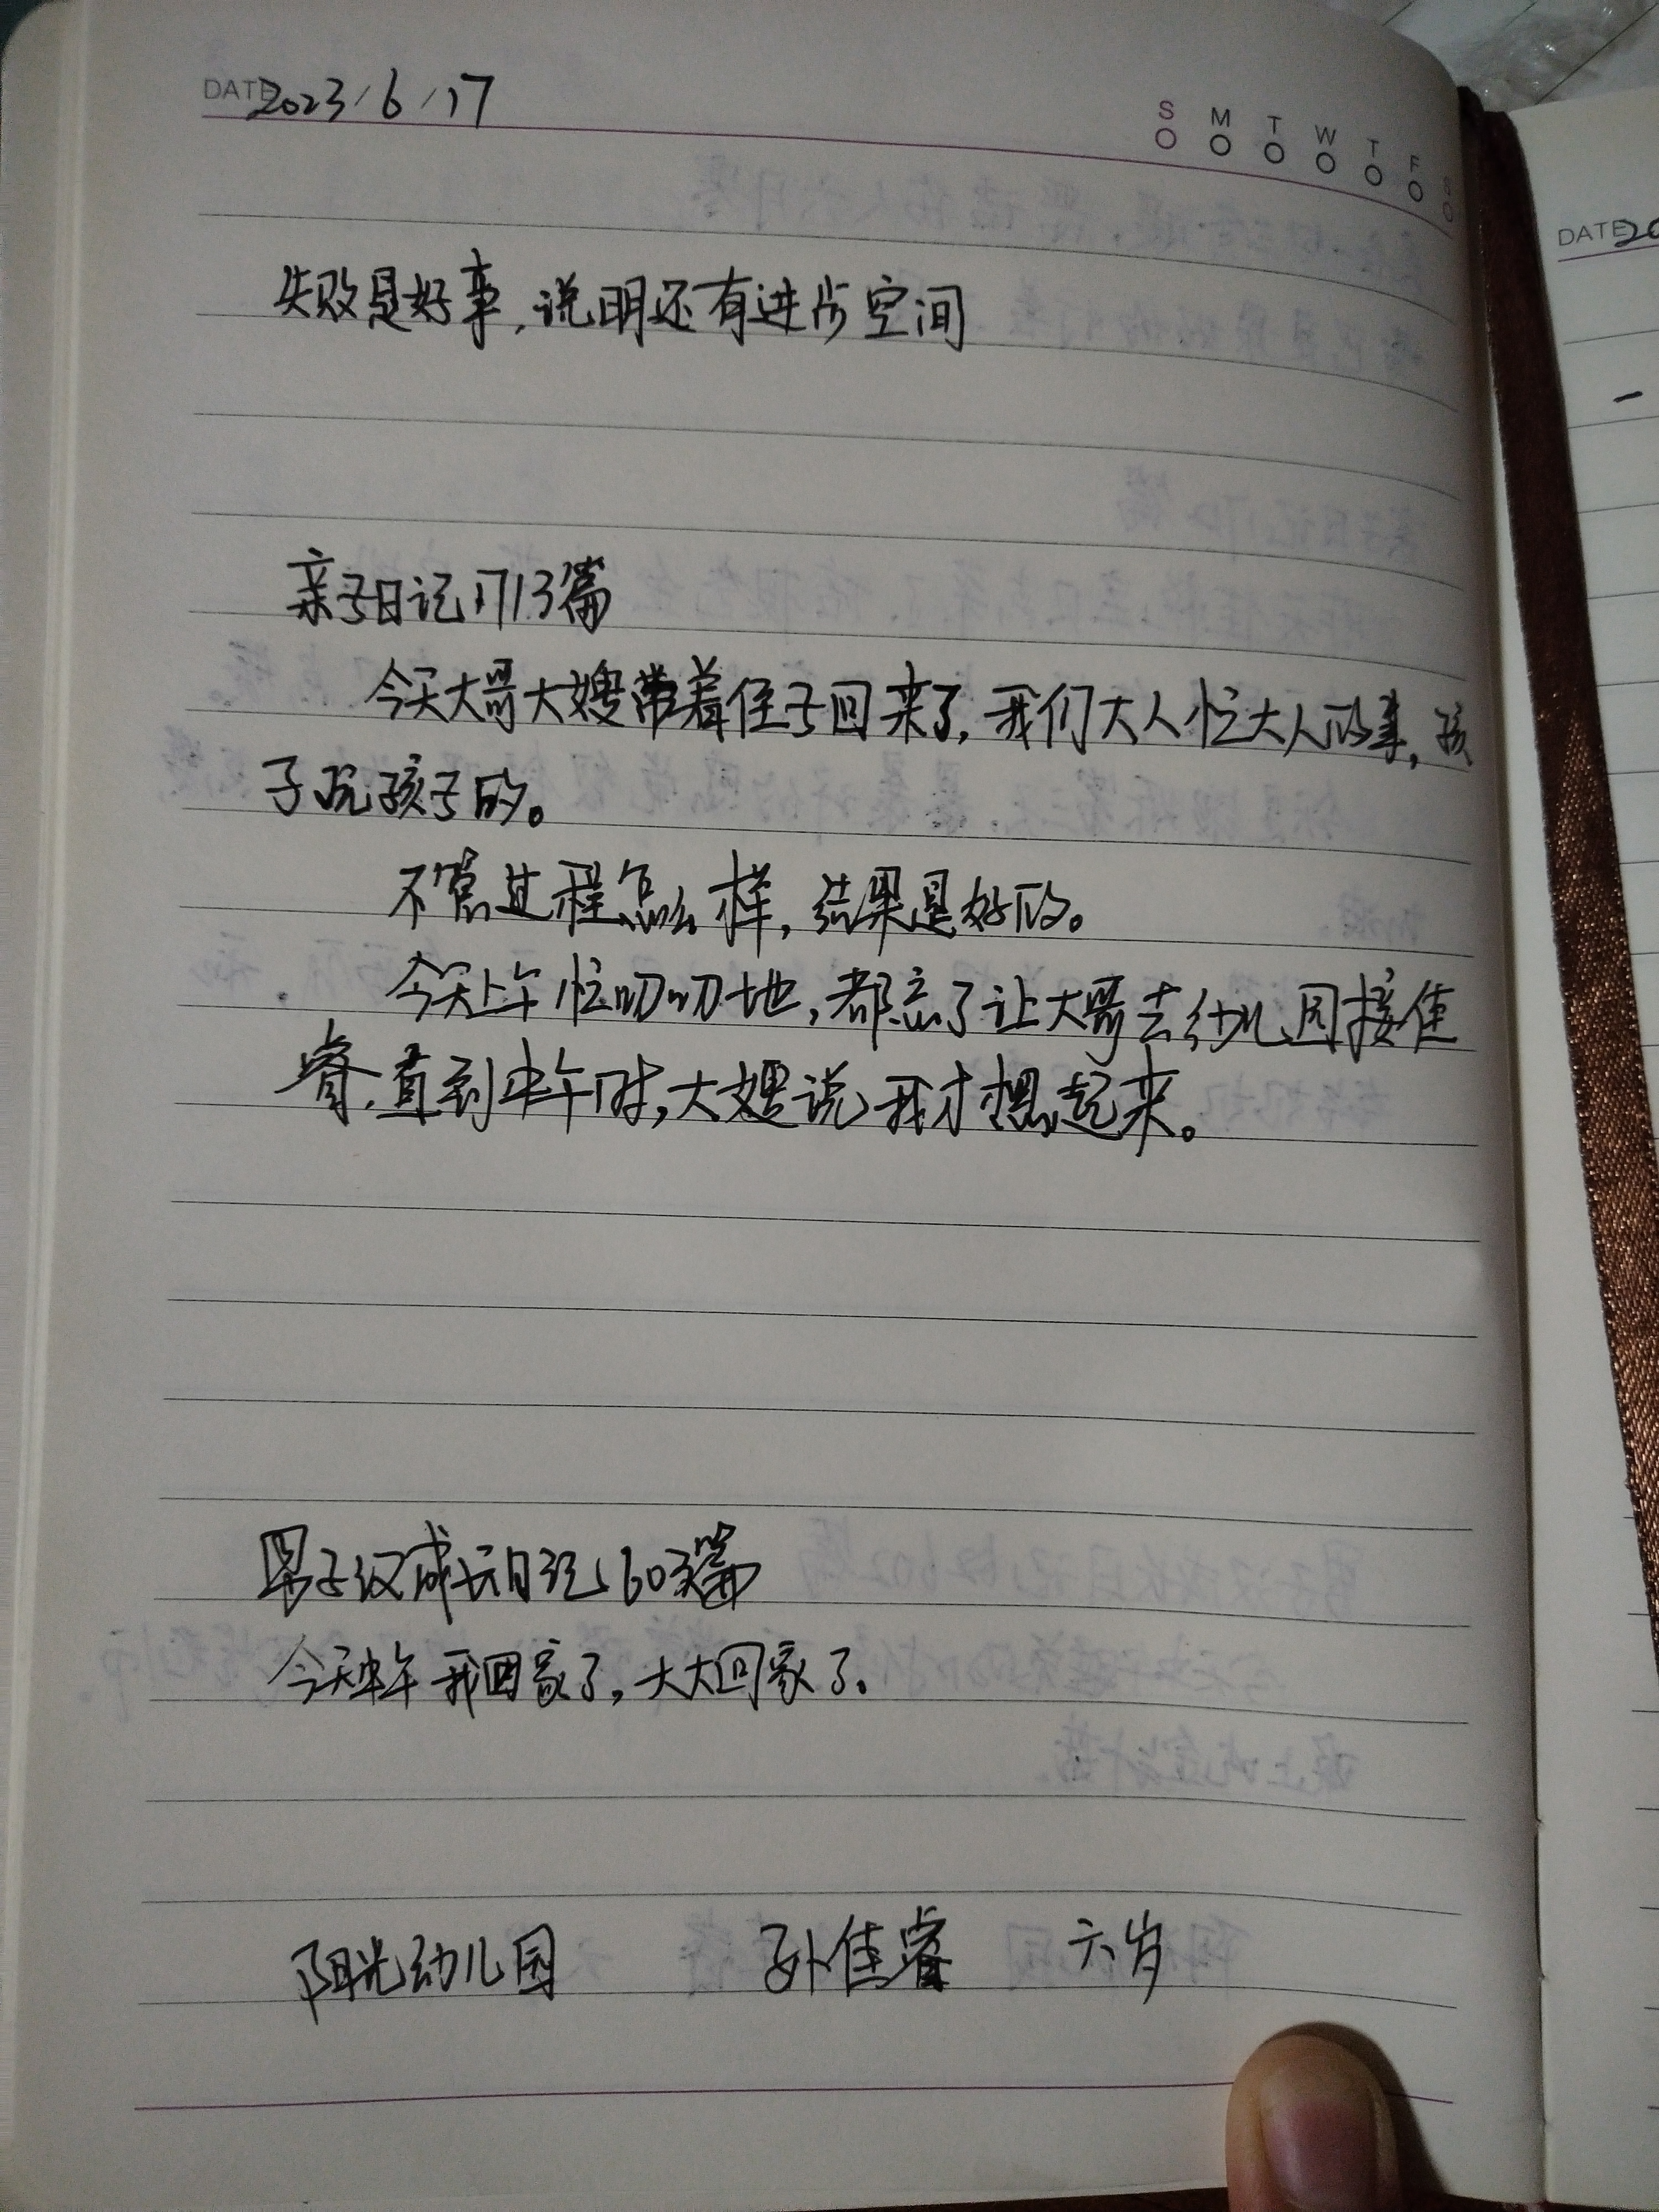 DATE 2023/6/17
S M T W T F S
失败是好事,说明还有进步空间
亲子日记1713篇
今天大哥大嫂带着侄子回来了,我们大人忙大人的事,孩
子玩孩子的。
不管过程怎么样,结果是好的。
今天上午忙叨叨地,都忘了让大哥去幼儿园接佳
睿,直到中午时,大嫂说我才想起来。
男子汉成长日记 603篇
今天中午我回家了,大大回家了。
阳光幼儿园 孙佳睿 六岁
DATE 20